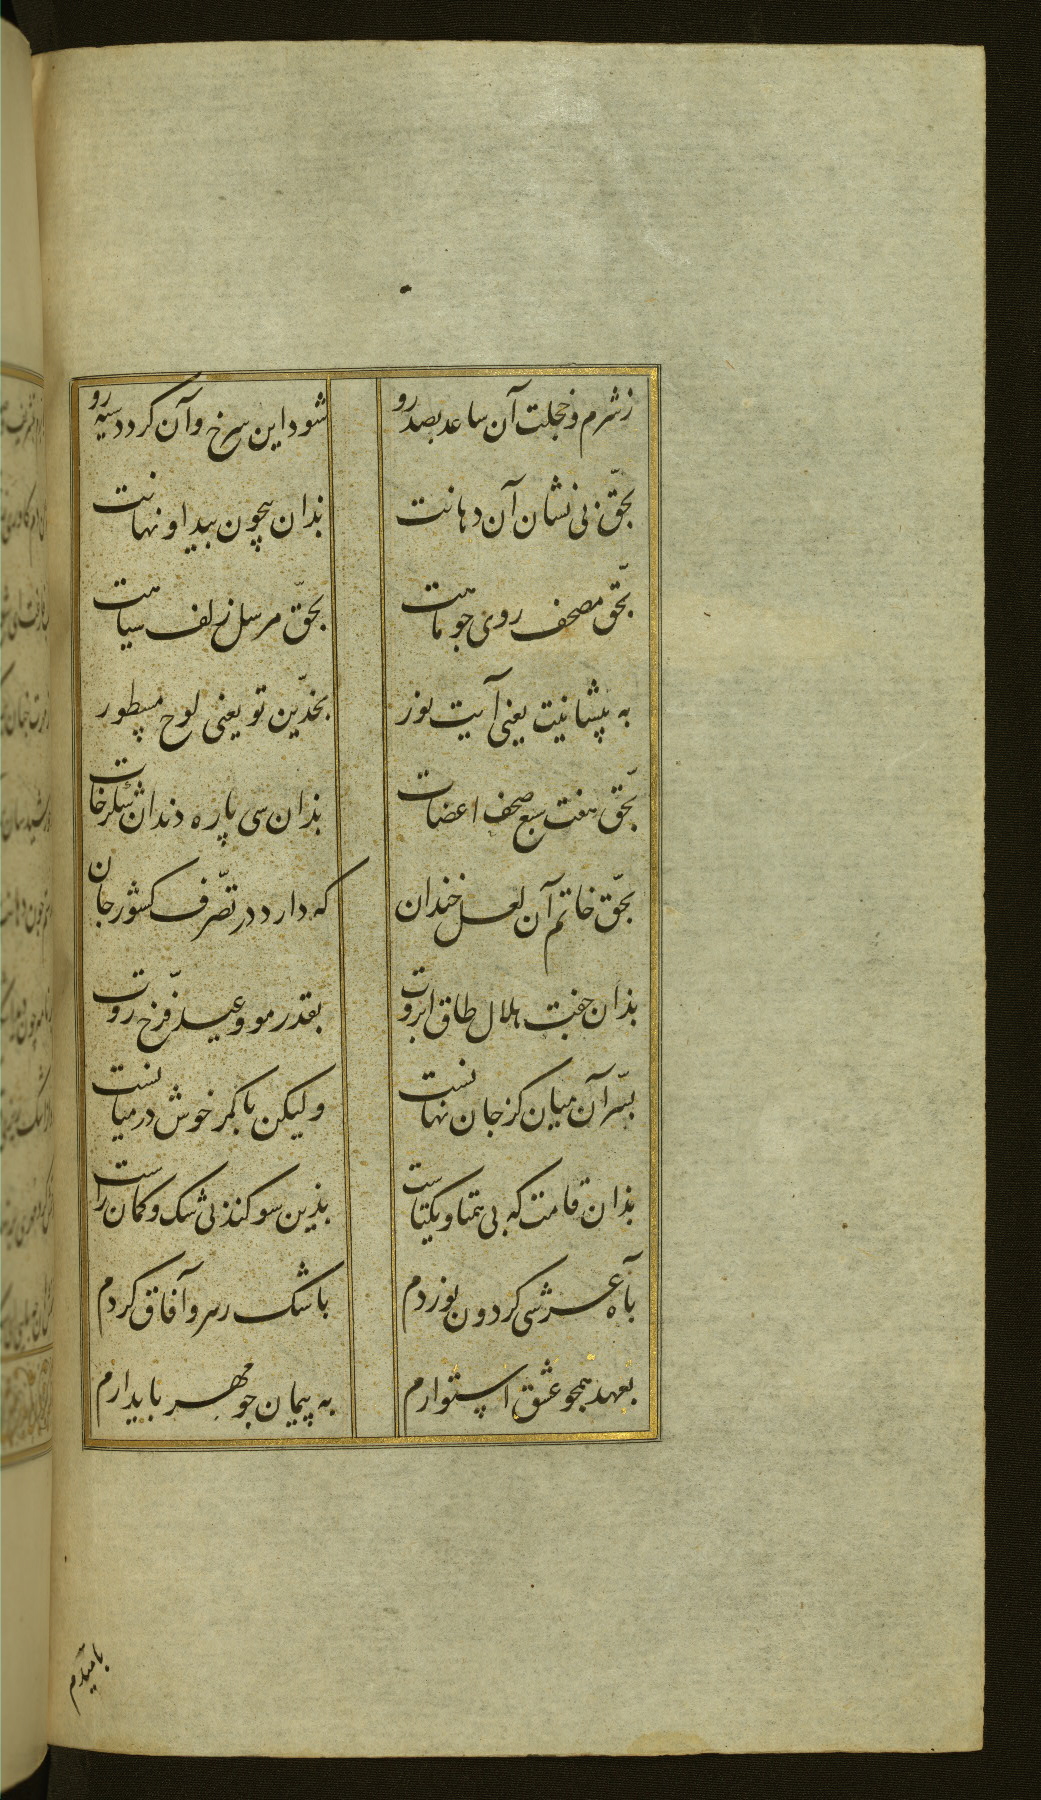 زشرم و خجلت آن ساعد بصد رو
شود این سرخ و آن کردد سیه رو
بحقّ بی نشان آن دهانت
بذان بیچون بیدا و نهانت
بحقّ مصحف روی جو ماهت
بحقّ مرسل زلف سیاهت
به پیشانیت یعنی آیت نور
بخدّین تو یعنی لوح مسطور
بحقّ هفت سبع صحف اعضات
بذان سی پاره دندان شکرخات
بحقّ خاتم آن لعل خندان
که دارد در تصّرف کشور جان
بذان جفت هلال طاق ابروت
بقدر مو و عید فرّخ روت
بسّر آن میان کز جان نهانست
ولیکن با کمر خوش در میانست
بذان قامت که بی همتا و یکتاست
بذین سوکند بی شک و کمان راست
بآه عرشی کردون نوردم
باشک رسرو آفاق کردم
بعهد همجو عشق استوارم
به پیمان جو مهر بایدارم